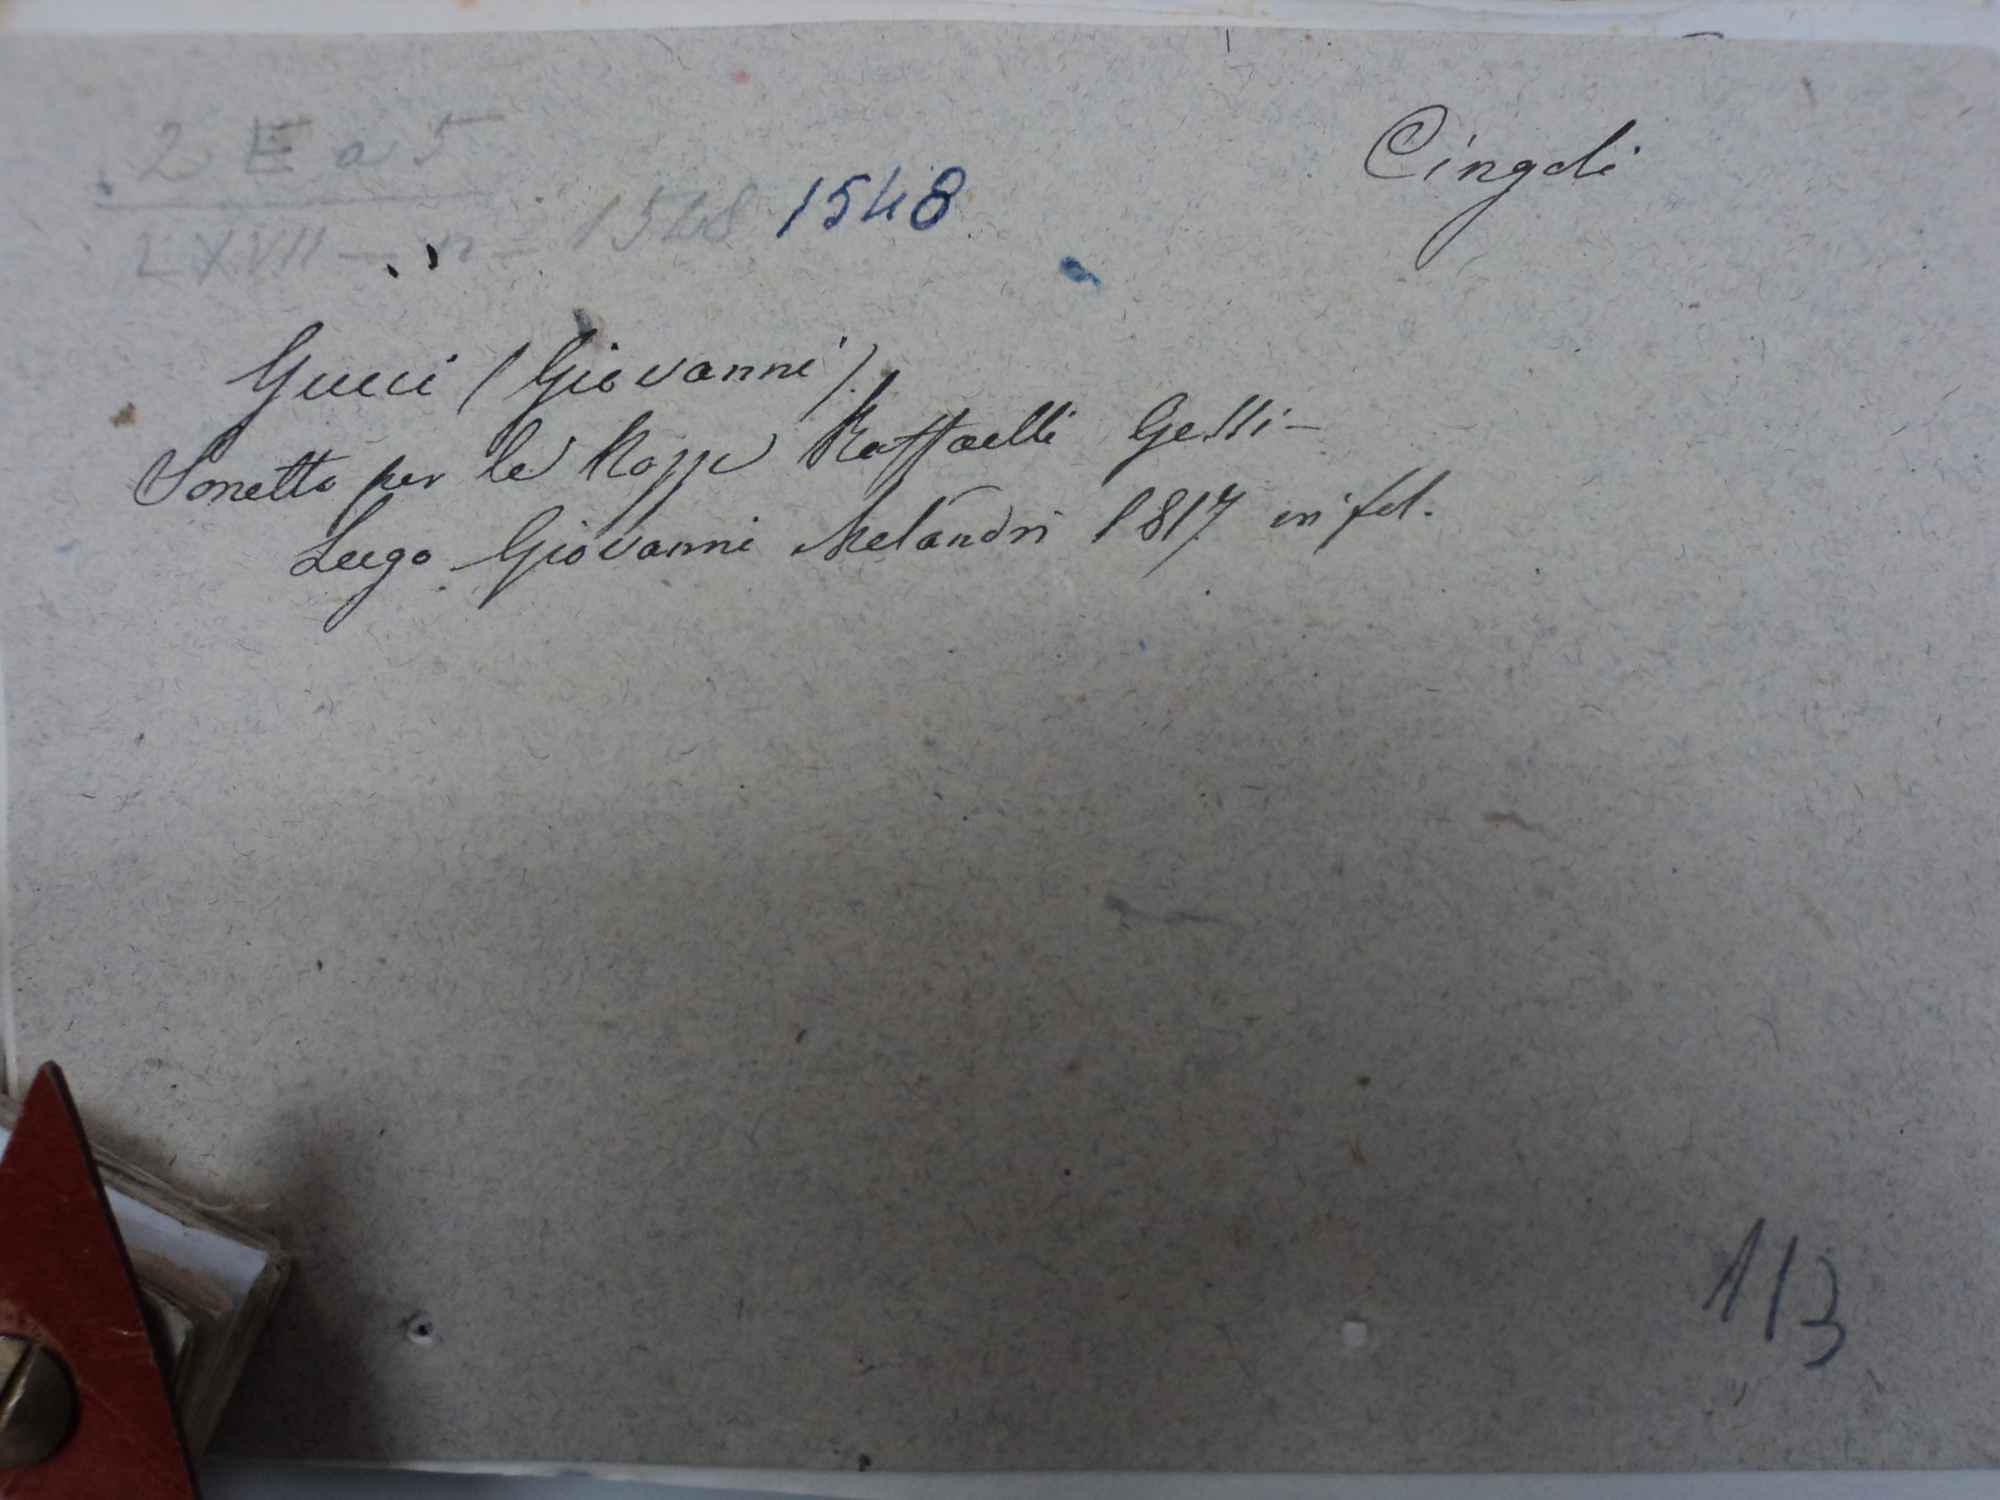 2 E a 5
LXVII - n = 1548 1548
Cingoli
Gucci (Giovanni).
Sonetto per le Nozze Raffaelli Gessi -
Lugo Giovanni Melandri 1817 in fol.
113